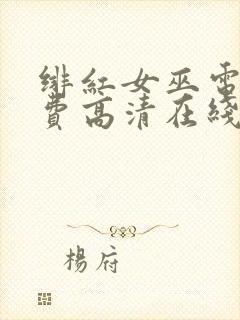 緋紅女巫電
費高清在綫
楊府